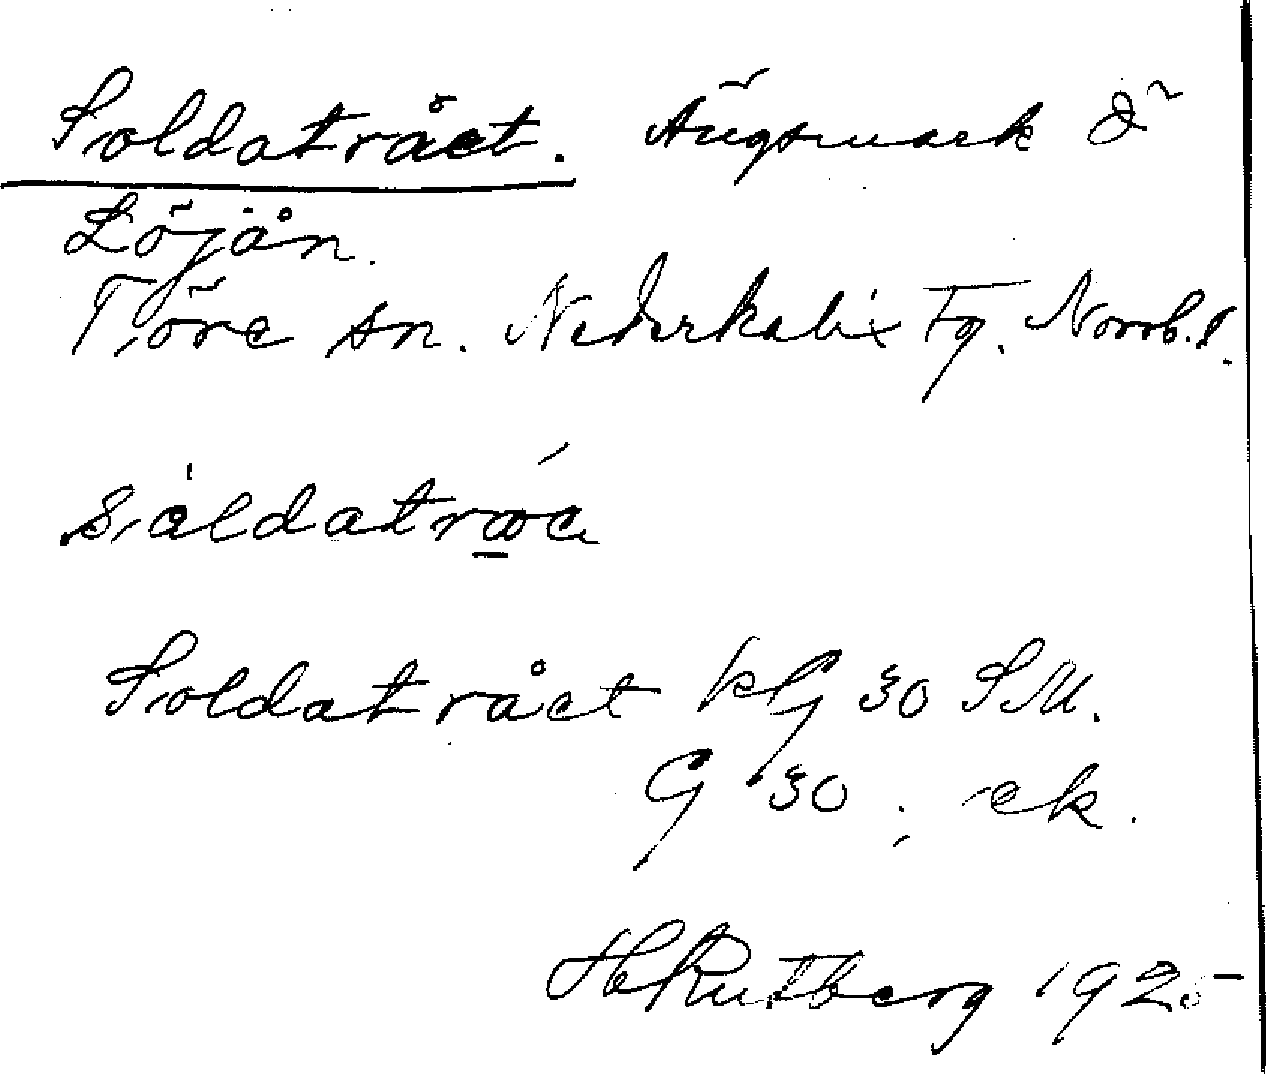 Soldatråct. Ängsmark ö
Löjån.
Töre sn. Nederkalix Fg. Norrb.l.
såldatråa
Soldatråct kG 30 SM.
G 30; ek.
HRutberg 1925